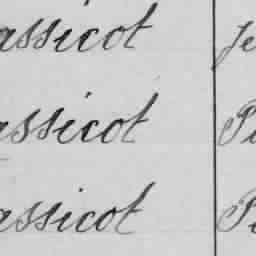 assicot Je
assicot Pi
assicot Pi